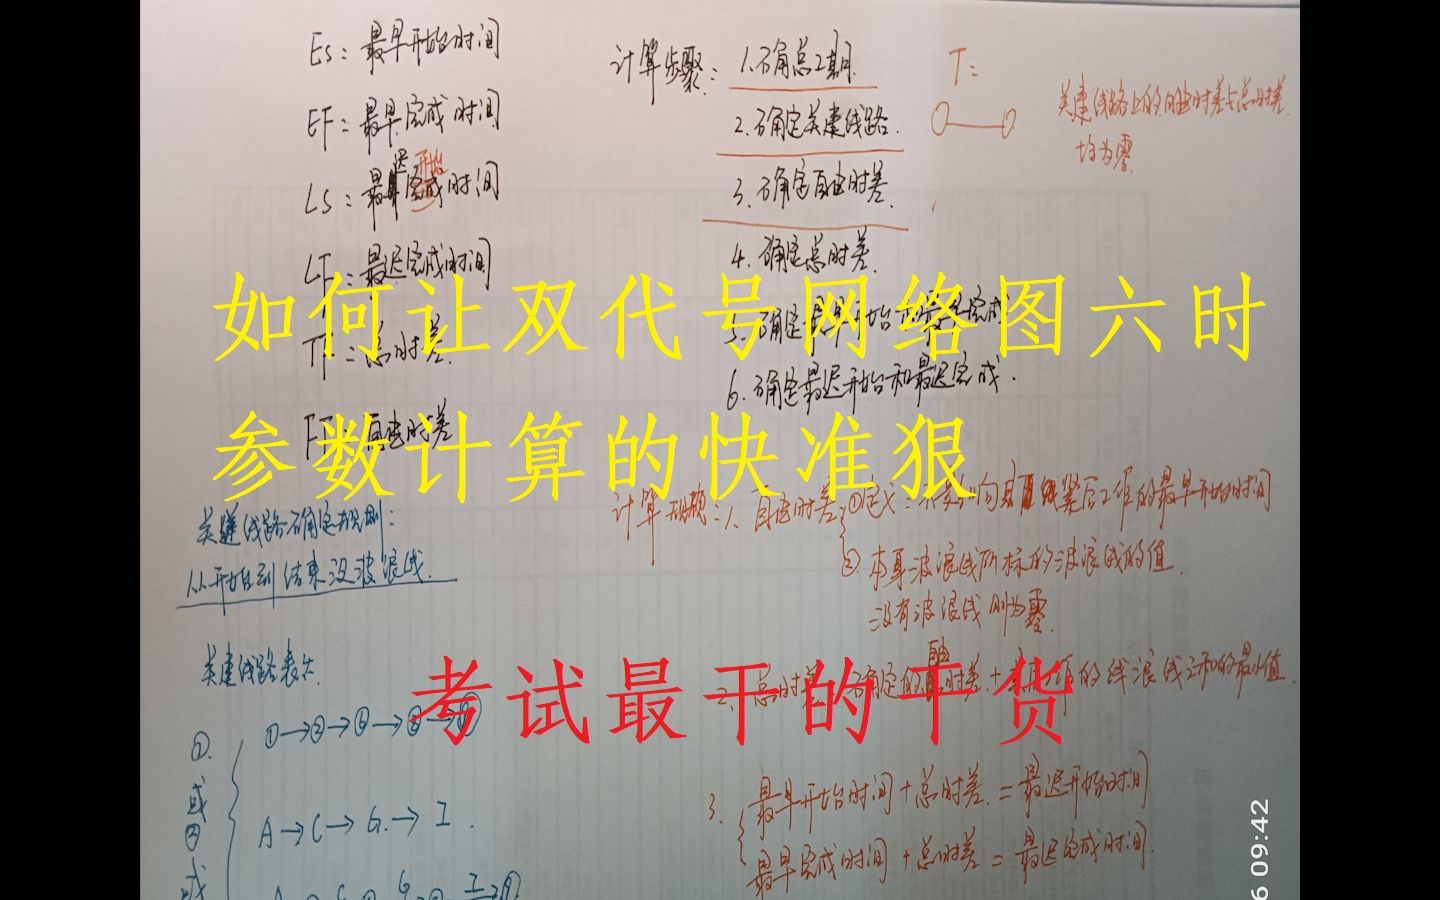 ES：最早开始时间
EF：最早完成时间
LS：最迟开始时间
LF：最迟完成时间
TF：总时差
FF：自由时差
计算步骤：1.确定总工期.
2.确定关建线路.
3.确定自由时差.
4.确定总时差.
5.确定最早开始和最早完成
6.确定最迟开始和最迟完成.
T：
关建线路上的自由时差与总时差
均为零.
如何让双代号网络图六时
参数计算的快准狠
考试最干的干货
关键线路确定规则：
从开始到结束没波浪线.
关建线路表
①→②→⑥→⑧→⑨
A→C→G→I.
① 或 ② 或
计算 1.自由时差 ①定义：不影响 紧后工作的最早开始时间
②本身波浪线所标的波浪线的值
没有波浪线则为零.
2.总时差 确定的自由时差+ 的线浪线之和的最小值.
3.最早开始时间+总时差=最迟开始时间
最早完成时间+总时差=最迟完成时间.
6 09:42